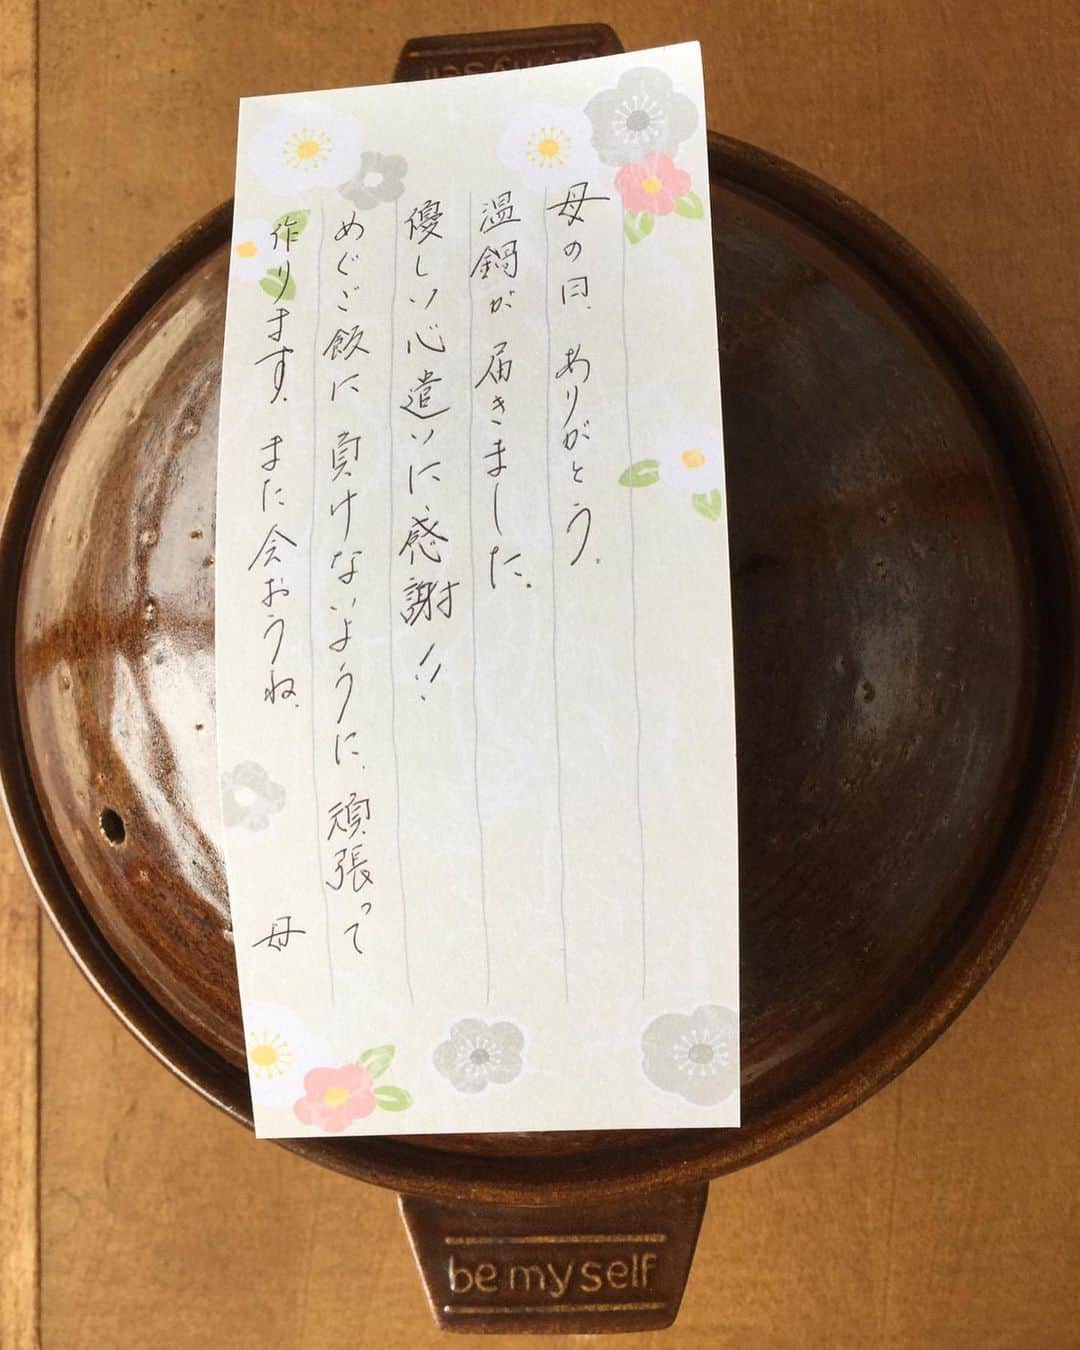 母の日、ありがとう。
温鍋が届きました。
優しい心遣いに、感謝!!
めぐご飯に負けないように、頑張って
作ります。また会おうね。
母
be my self